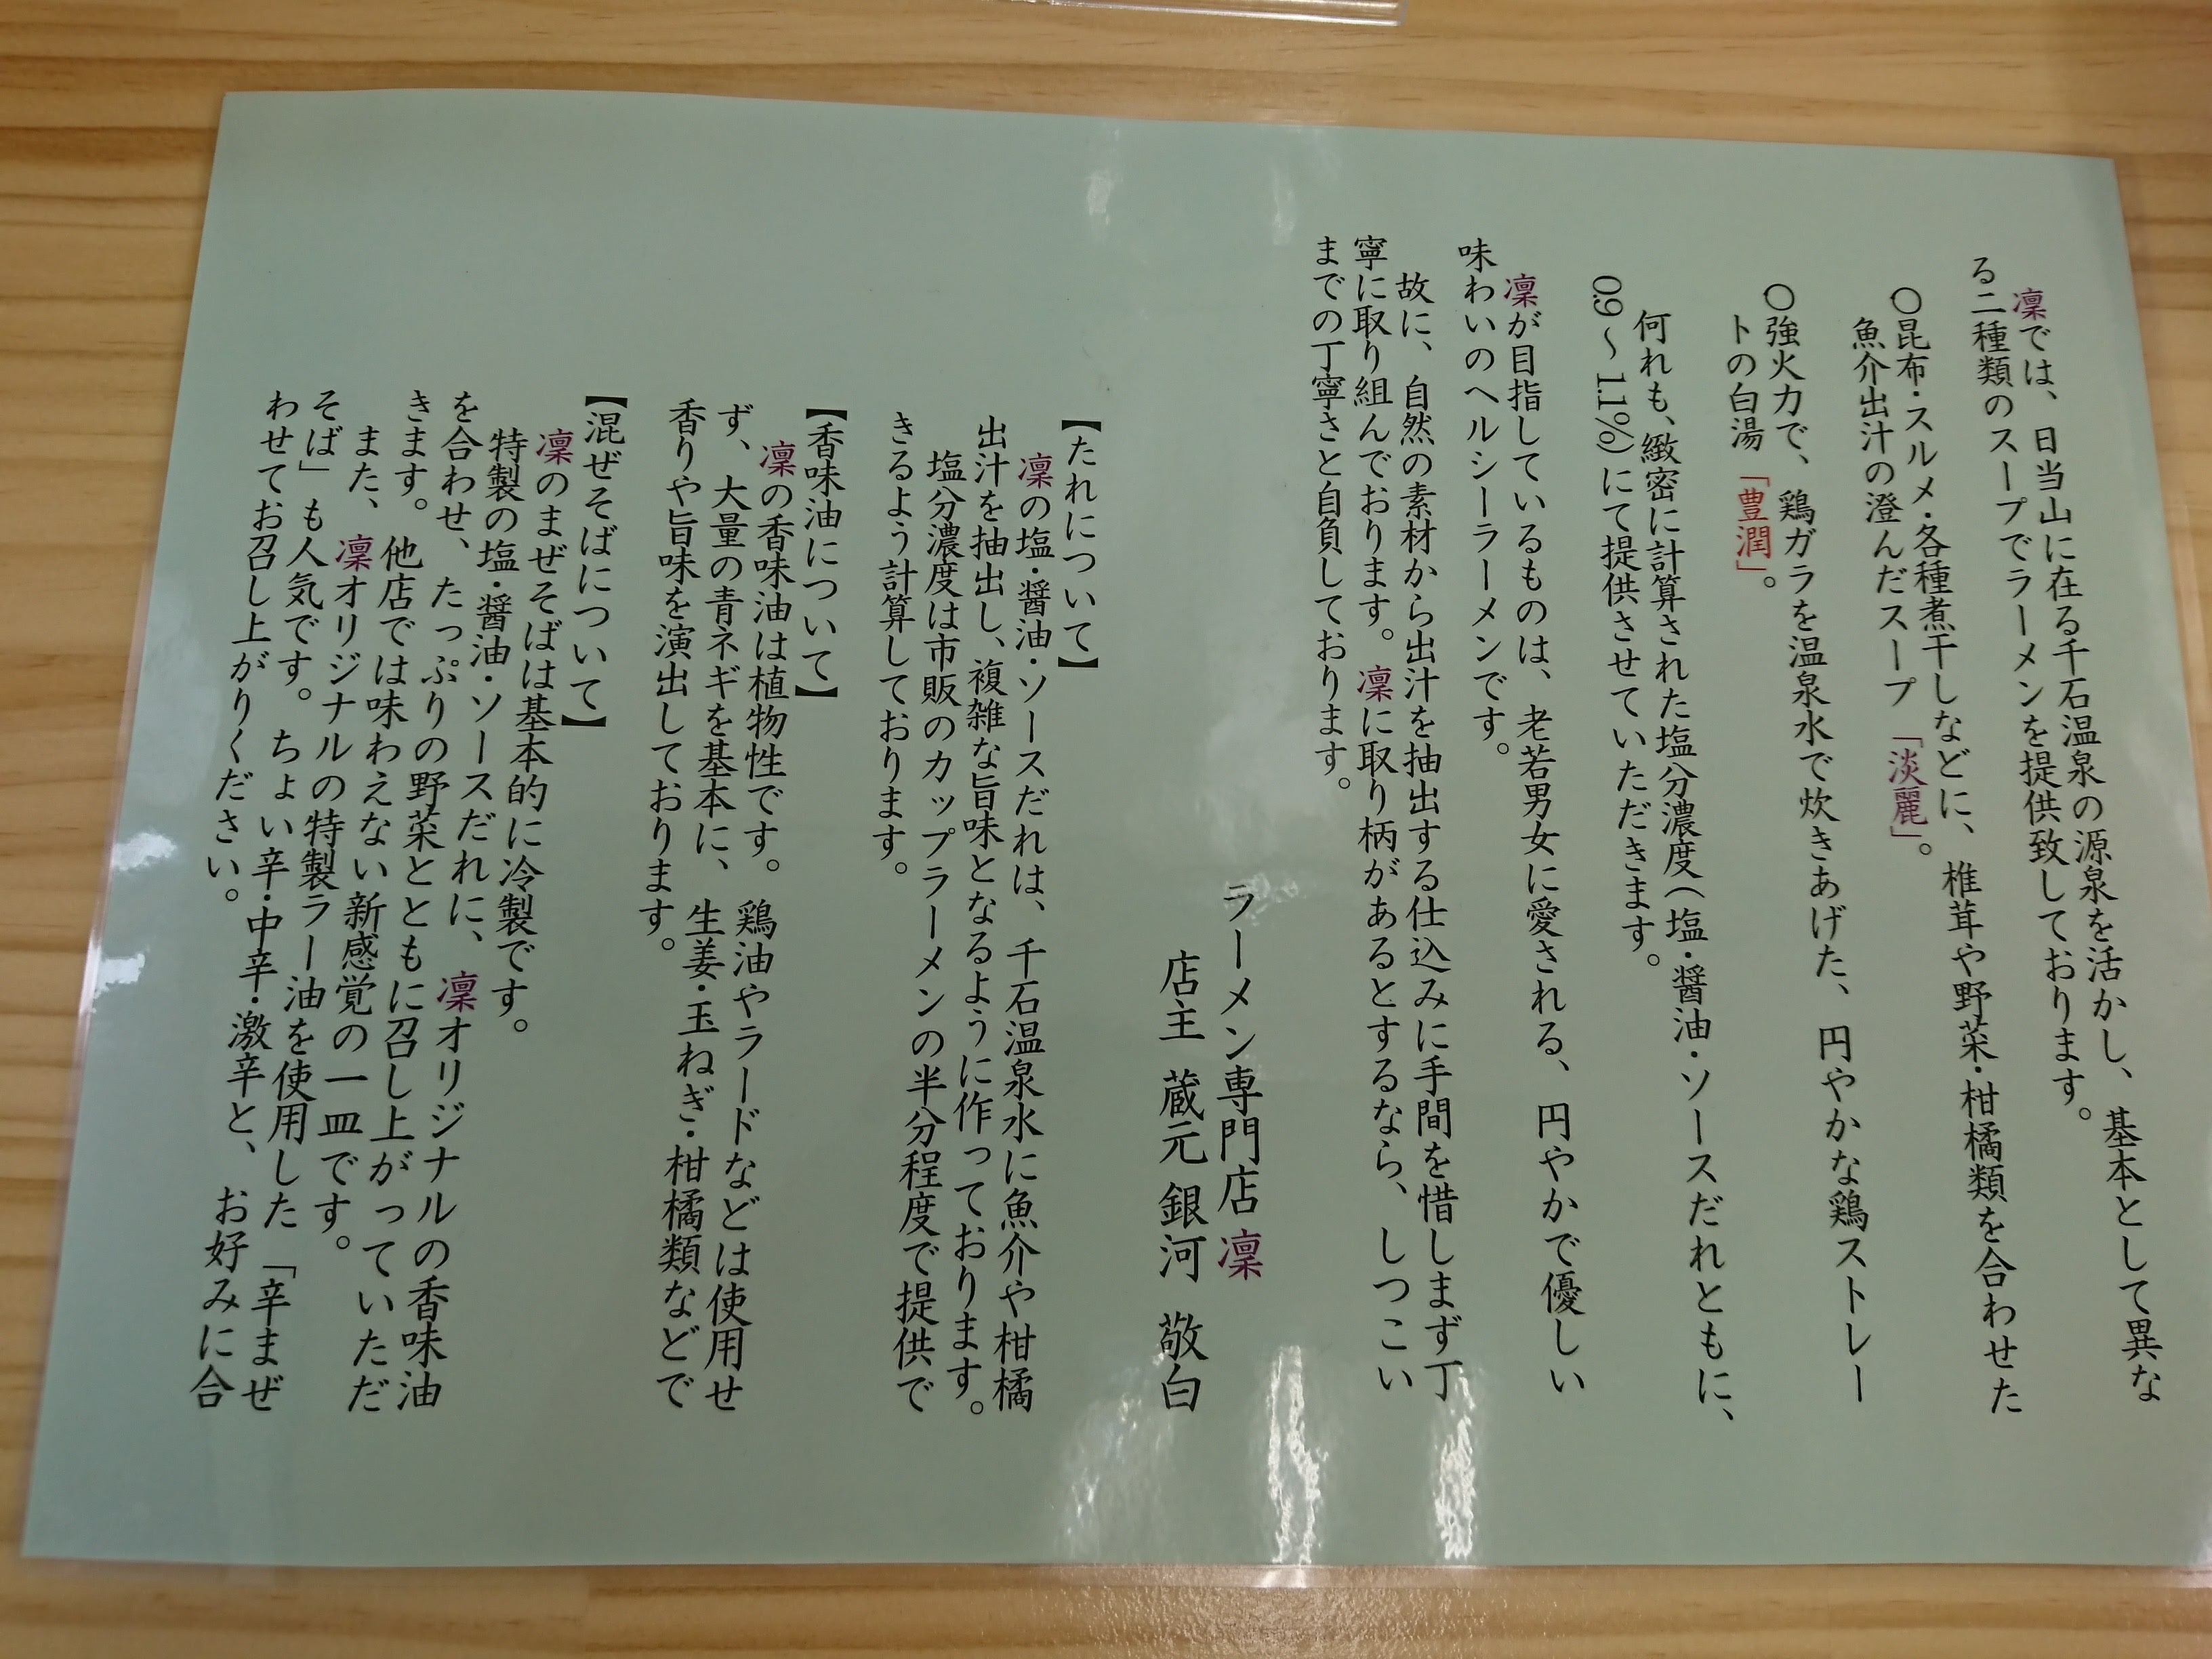 凛では、日当山に在る千石温泉の源泉を活かし、基本として異な
る二種類のスープでラーメンを提供致しております。
〇昆布・スルメ・各種煮干しなどに、椎茸や野菜・柑橘類を合わせた
魚介出汁の澄んだスープ「淡麗」。
〇強火力で、鶏ガラを温泉水で炊きあげた、円やかな鶏ストレー
トの白湯「豊潤」。
何れも、緻密に計算された塩分濃度(塩・醤油・ソースだれともに、
0.9～1.1%)にて提供させていただきます。
凛が目指しているものは、老若男女に愛される、円やかで優しい
味わいのヘルシーラーメンです。
故に、自然の素材から出汁を抽出する仕込みに手間を惜しまず丁
寧に取り組んでおります。凛に取り柄があるとするなら、しつこい
までの丁寧さと自負しております。
ラーメン専門店 凛
店主 蔵元 銀河 敬白
【たれについて】
凛の塩・醤油・ソースだれは、千石温泉水に魚介や柑橘
出汁を抽出し、複雑な旨味となるように作っております。
塩分濃度は市販のカップラーメンの半分程度で提供で
きるよう計算しております。
【香味油について】
凛の香味油は植物性です。鶏油やラードなどは使用せ
ず、大量の青ネギを基本に、生姜・玉ねぎ・柑橘類などで
香りや旨味を演出しております。
【混ぜそばについて】
凛のまぜそばは基本的に冷製です。
特製の塩・醤油・ソースだれに、凛オリジナルの香味油
を合わせ、たっぷりの野菜とともに召し上がっていただ
きます。他店では味わえない新感覚の一皿です。
また、凛オリジナルの特製ラー油を使用した「辛まぜ
そば」も人気です。ちょい辛・中辛・激辛と、お好みに合
わせてお召し上がりください。